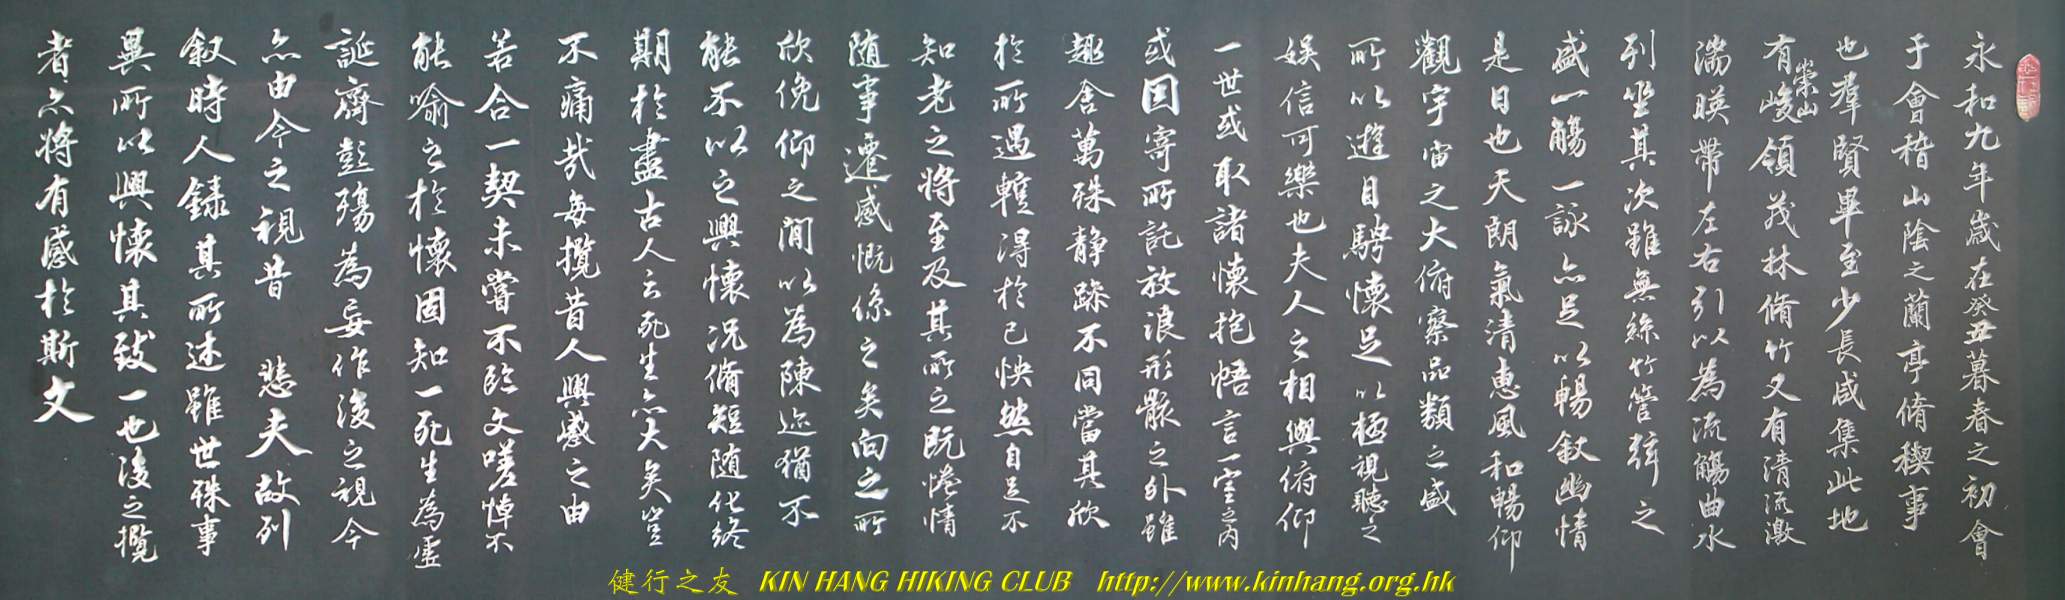 永和九年歲在癸丑暮春之初會
于會稽山陰之蘭亭脩稧事
也羣賢畢至少長咸集此地
有崇山峻領茂林脩竹又有清流激
湍暎帶左右引以為流觴曲水
列坐其次雖無絲竹管弦之
盛一觴一詠亦足以暢敘幽情
是日也天朗氣清惠風和暢仰
觀宇宙之大俯察品類之盛
所以遊目騁懷足以極視聽之
娛信可樂也夫人之相與俯仰
一世或取諸懷抱悟言一室之內
或因寄所託放浪形骸之外雖
趣舍萬殊静躁不同當其欣
於所遇蹔得於己怏然自足不
知老之將至及其所之既惓情
随事遷感慨係之矣向之所
欣俛仰之閒以為陳迹猶不
能不以之興懷況脩短随化終
期於盡古人云死生亦大矣豈
不痛哉每攬昔人興感之由
若合一契未嘗不臨文嗟悼不
能喻之於懷固知一死生為虛
誕齊彭殤為妄作後之視今
亦由今之視昔 悲夫故列
敘時人錄其所述雖世殊事
異所以興懷其致一也後之攬
者亦將有感於斯文
健行之友 KIN HANG HIKING CLUB http://www.kinhang.org.hk